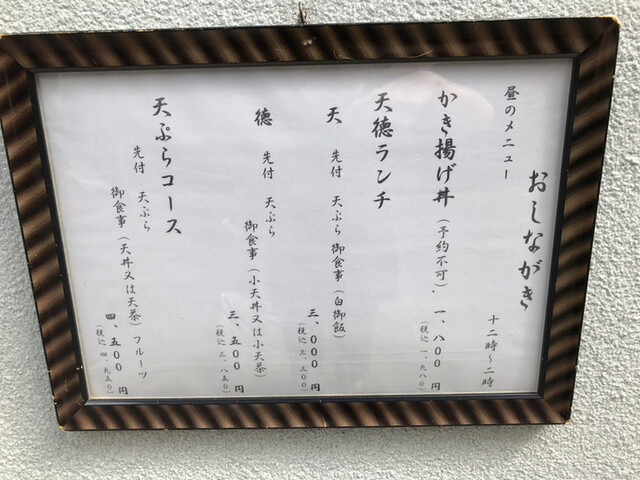 おしながき
昼のメニュー
十二時〜二時
かき揚げ丼（予約不可）. 一、八〇〇円
（税込 一、九八〇）
天徳ランチ
天 先付 天ぷら 御食事（白御飯）
三、〇〇〇円
（税込 三、三〇〇）
徳 先付 天ぷら
御食事（小天丼又は小天茶）
三、五〇〇円
（税込 三、八五〇）
天ぷらコース
先付 天ぷら
御食事（天丼又は天茶）フルーツ
四、五〇〇円
（税込 四、九五〇）